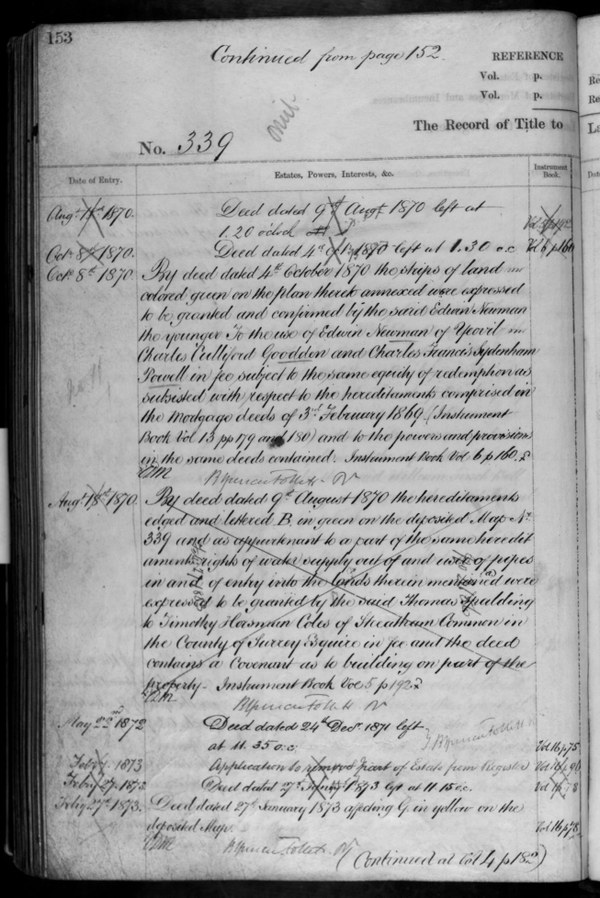 153
Continued from page 152
REFERENCE
Vol. p.
Vol. p.
The Record of Title to
No. 339
Date of Entry.
Estates, Powers, Interests, &c.
Instrument Book.
Augt 1870.
Deed dated 9th Augt 1870 left at
1.20 o'clock
Octr 8th 1870.
Deed dated 4th Octr 1870 left at 1.30 o.c
Vol 6 p 160
Octr 8th 1870
By deed dated 4th October 1870 the strips of land
colored green on the plan thereto annexed were expressed
to be granted and confirmed by the said Edwin Newman
the younger To the use of Edwin Newman of Yeovil
Charles Culliford Goodden and Charles Francis Sydenham
Powell in fee subject to the same equity of redemption as
subsisted with respect to the hereditaments comprised in
the Mortgage deeds of 3rd February 1869 (Instrument
Book Vol 13 pp 179 and 180) and to the powers and provisions
in the same deeds contained. Instrument Book Vol 6 p 160.
Augt 18th 1870.
By deed dated 9th August 1870 the hereditaments
edged and lettered B. in green on the deposited Map No
339 and as appurtenant to a part of the same heredit
aments rights of water supply out of and use of pipes
in and of entry into the lands therein mentioned were
expressed to be granted by the said Thomas Spalding
to Timothy Horsman Coles of Streatham Common in
the County of Surrey Esquire in fee and the deed
contains a Covenant as to building on part of the
property. Instrument Book Vol 5 p 192
May 22nd 1872
Deed dated 24th Decr 1871 left
at 11.35 o.c.
Vol 16 p 75
Feby 1873
Application to remove part of Estate from Register
Feby 27 1872
Deed dated 27th January 1873 left at 11.15 o.c.
Feby 27th 1873.
Deed dated 27th January 1873 affecting G. in yellow on the
deposited Map.
Vol 16 p 78
(Continued at Vol 4 p 18)